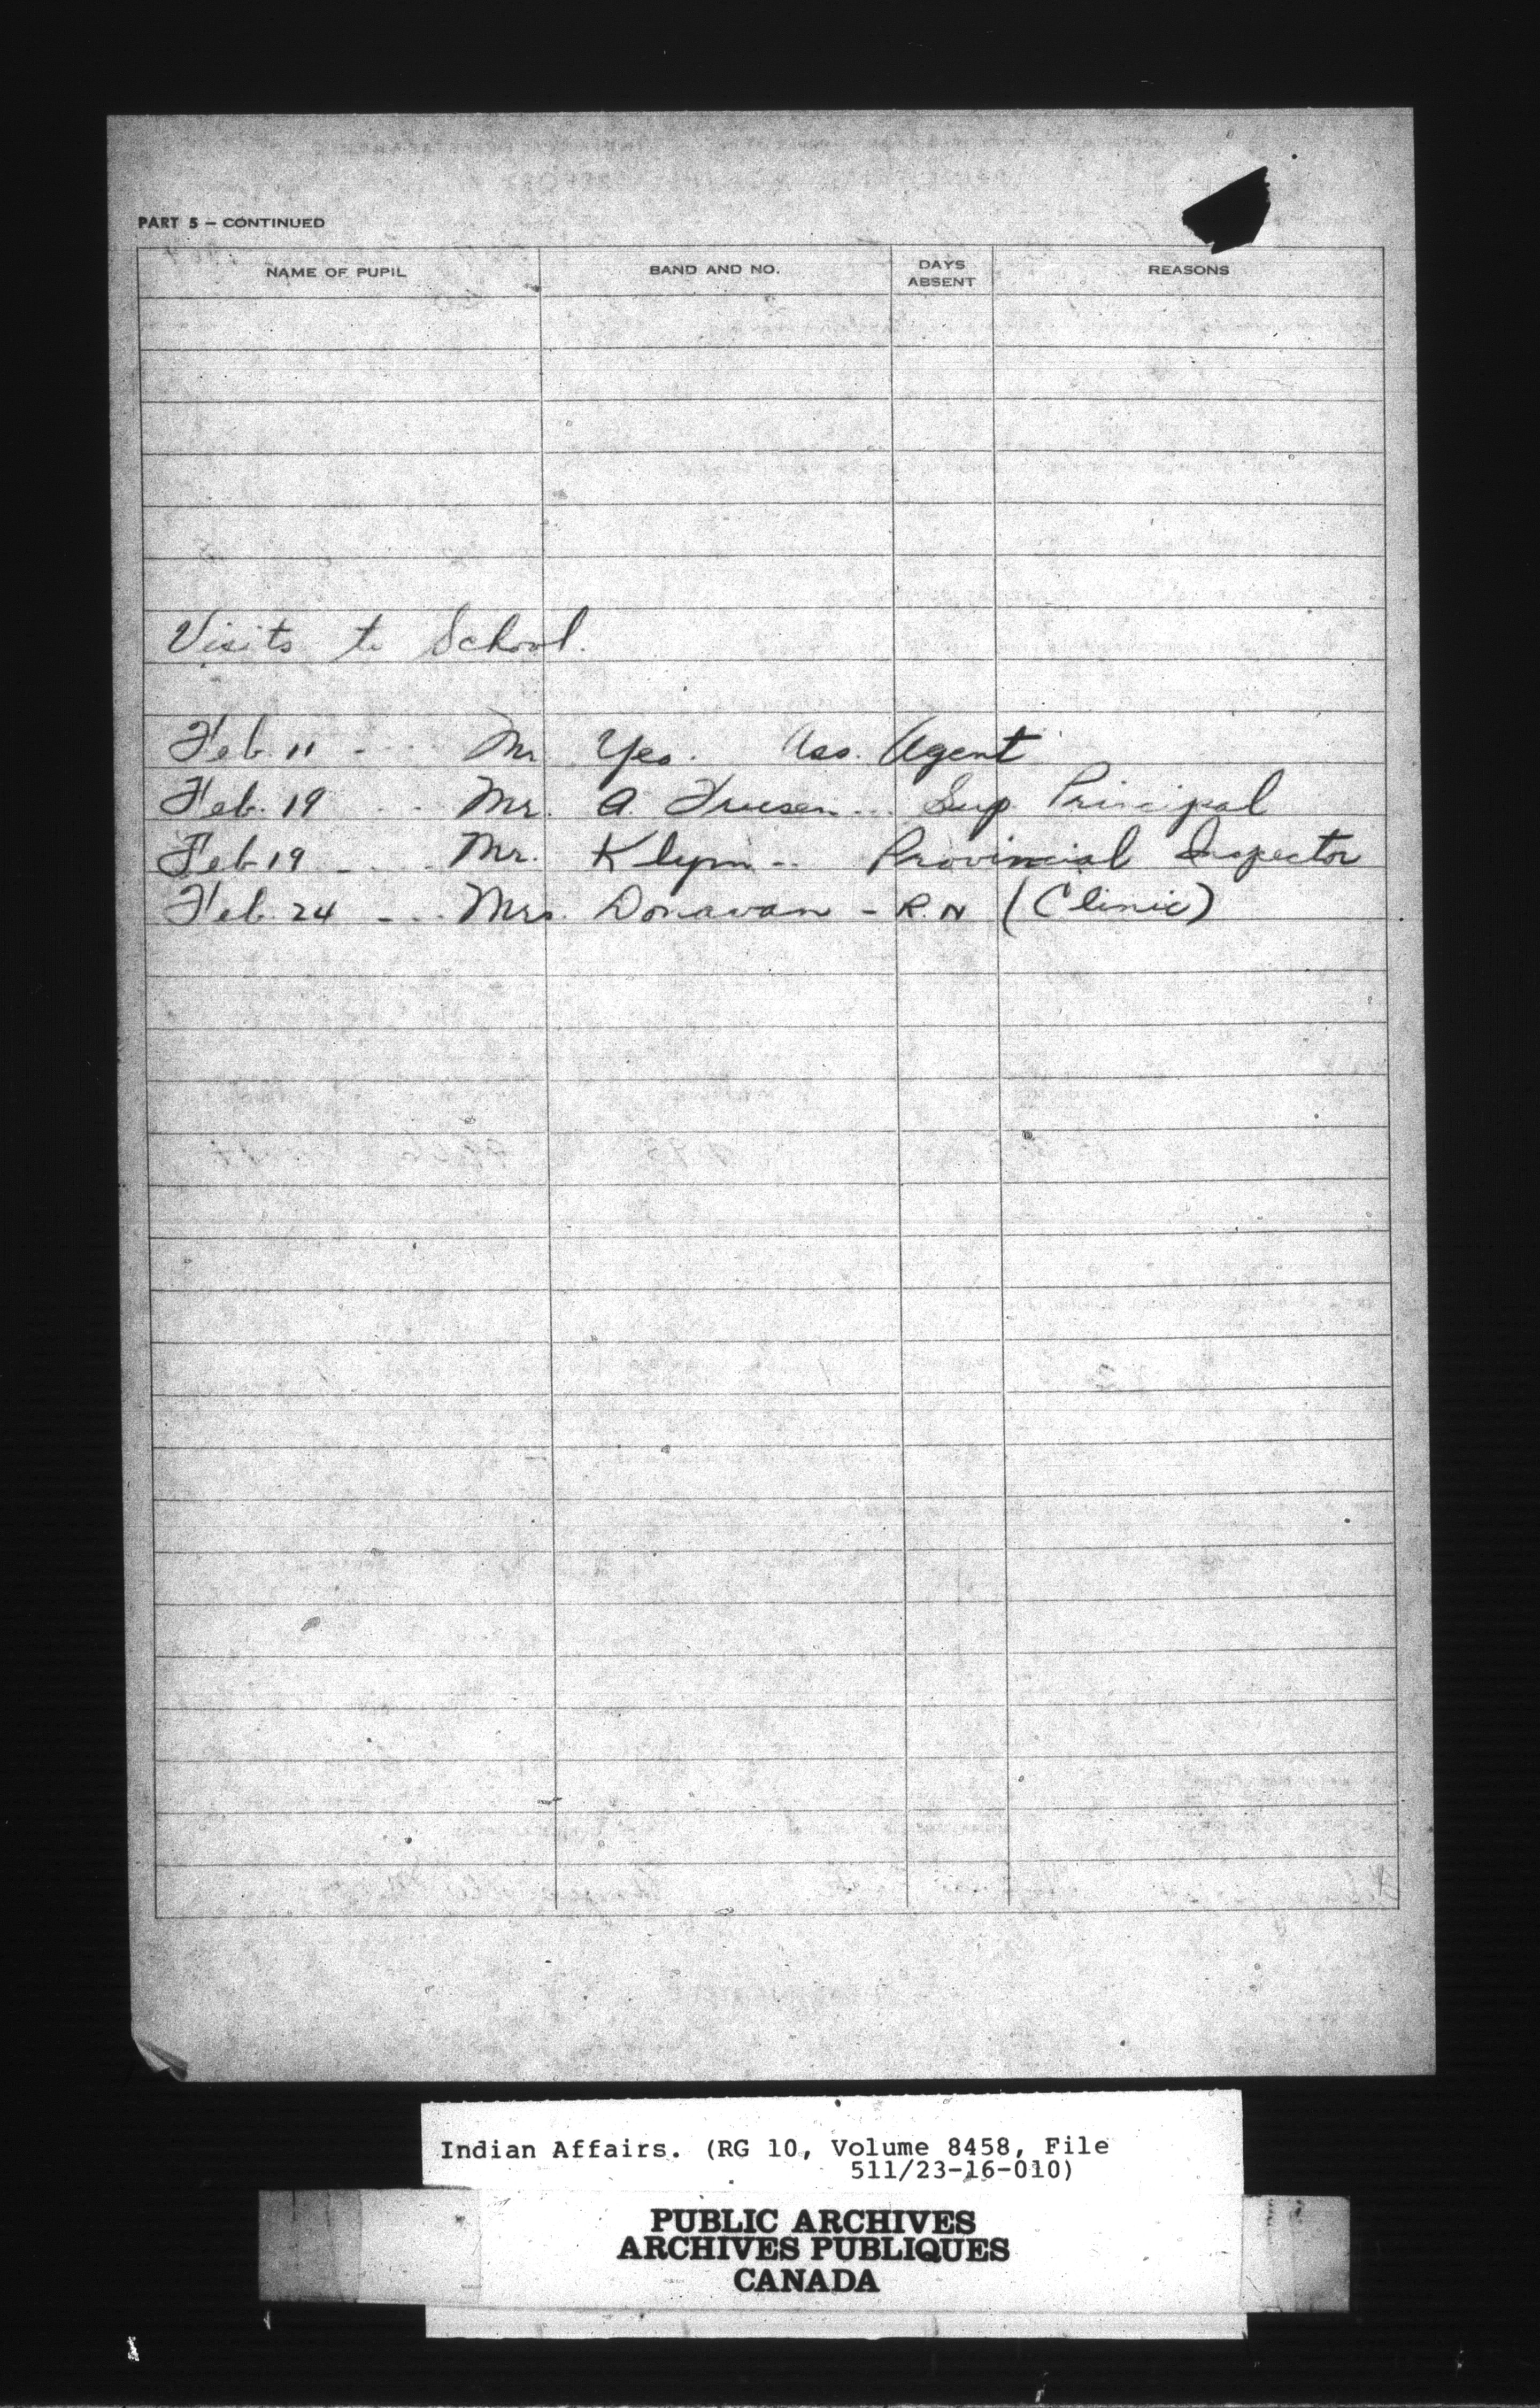 PART 5 — CONTINUED
NAME OF PUPIL BAND AND NO. DAYS ABSENT REASONS
Visits to School.
Feb. 11 - - - Mr Yeo. Ass. Agent
Feb. 19 - - Mr. A. Friesen... Sup Principal
Feb 19 - - - Mr. Klym -- Provincial Inspector
Feb. 24 - - - Mrs. Donavan - R.N (Clinic)
Indian Affairs. (RG 10, Volume 8458, File
511/23-16-010)
PUBLIC ARCHIVES
ARCHIVES PUBLIQUES
CANADA